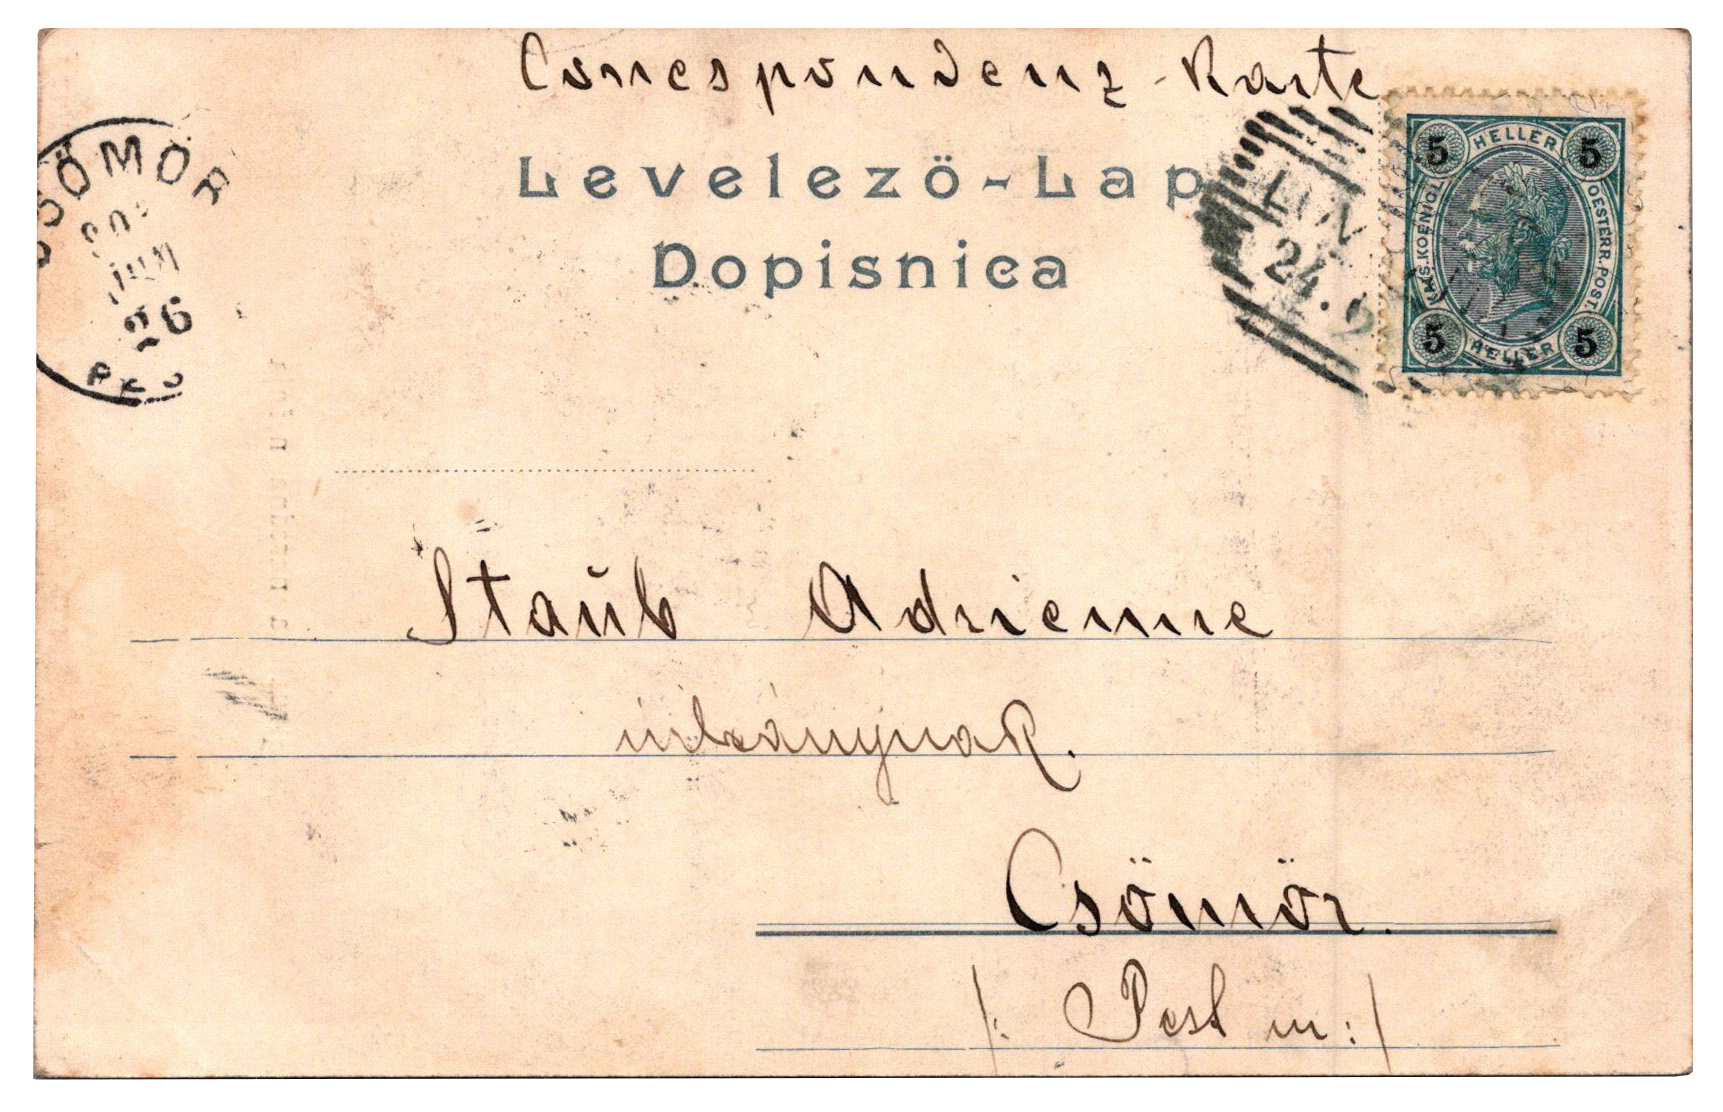 Correspondenz-Karte
Levelező-Lap
Dopisnica
5 HELLER 5
KAIS. KOENIGL. OESTERR. POST.
5 HELLER 5
24.9
CSÖMÖR
JUN
26
Staub Adrienne
úrleánynak.
Csömör.
/: Pest m :/